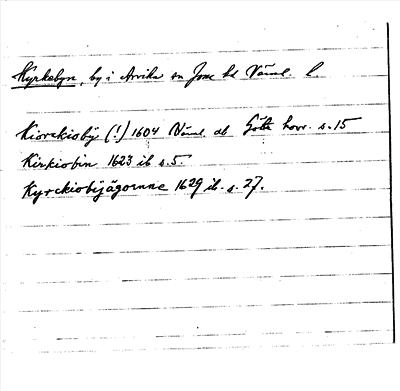 Kyrkebyn, by i Arvika sn Jösse hd Värml. l.
Kiorckioby (!) 1604 Värml. db Göta hovr. s. 15
Kirkiobin 1623 ib s. 5.
Kyrckiobijägornne 1629 ib. s. 27.